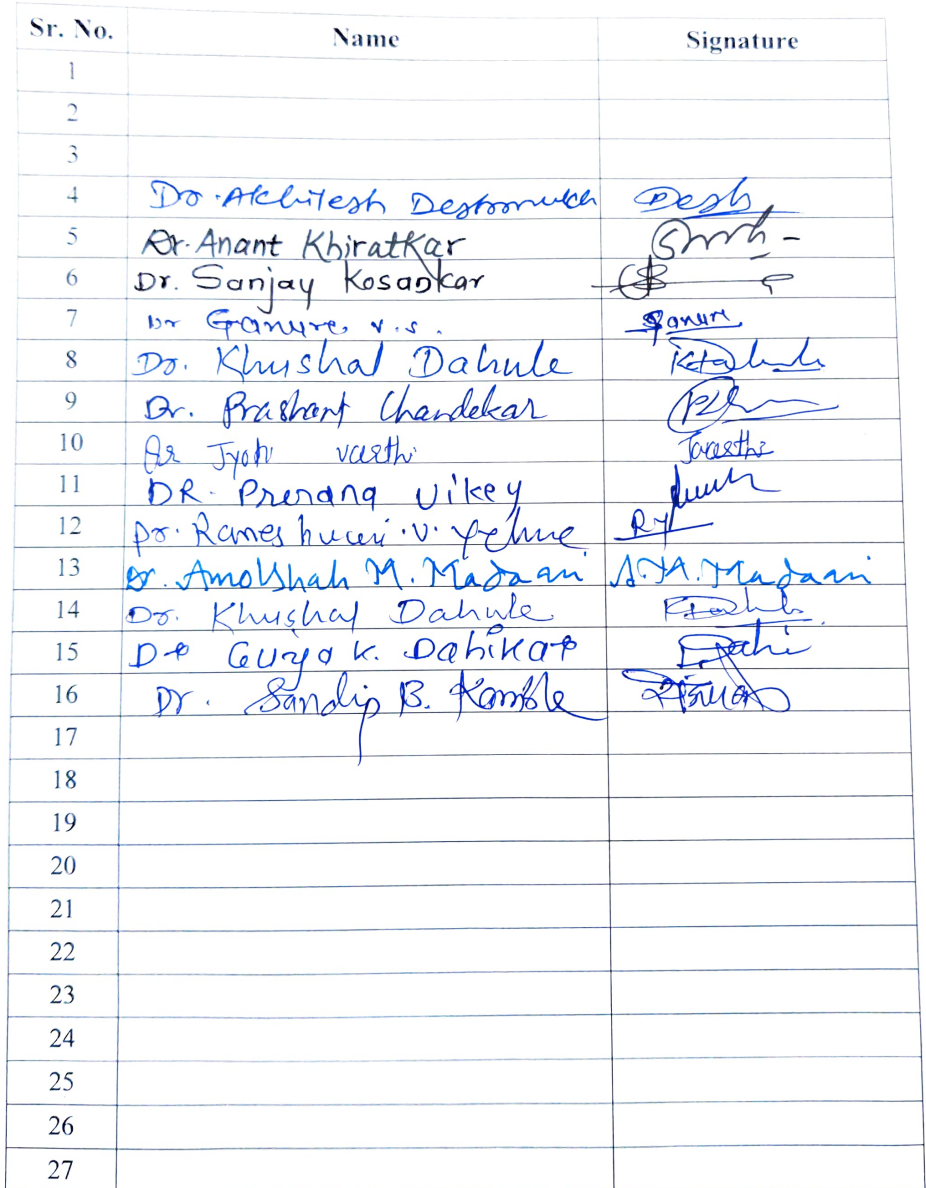 Sr. No. Name Signature
1
2
3
4 Dr. Akhilesh Deshmukh Desh
5 Dr. Anant Khiratkar
6 Dr. Sanjay Kosankar
7 Dr Ganure v.s. Ganure
8 Dr. Khushal Dahule
9 Dr. Prashant Chandekar
10 Dr Jyoti vasthi
11 DR. Prerana Uikey
12 Dr. Rameshwari.V. Yelme
13 Dr. Amolshah M. Madaan A.M.Madaan
14 Dr. Khushal Dahule
15 Dr K. Dahikar Dahi
16 Dr. Sandip B. Kamble
17
18
19
20
21
22
23
24
25
26
27